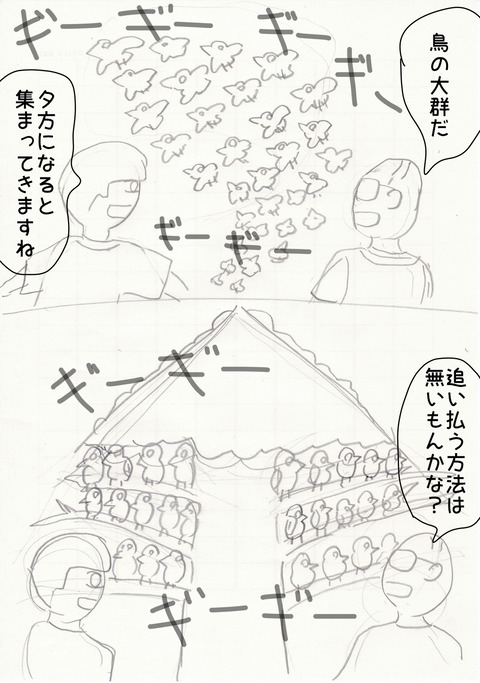 ギーギーギーギー
鳥の大群だ
夕方になると
集まってきますね
ギーギー
ギーギー
追い払う方法は
無いもんかな?
ギーギー